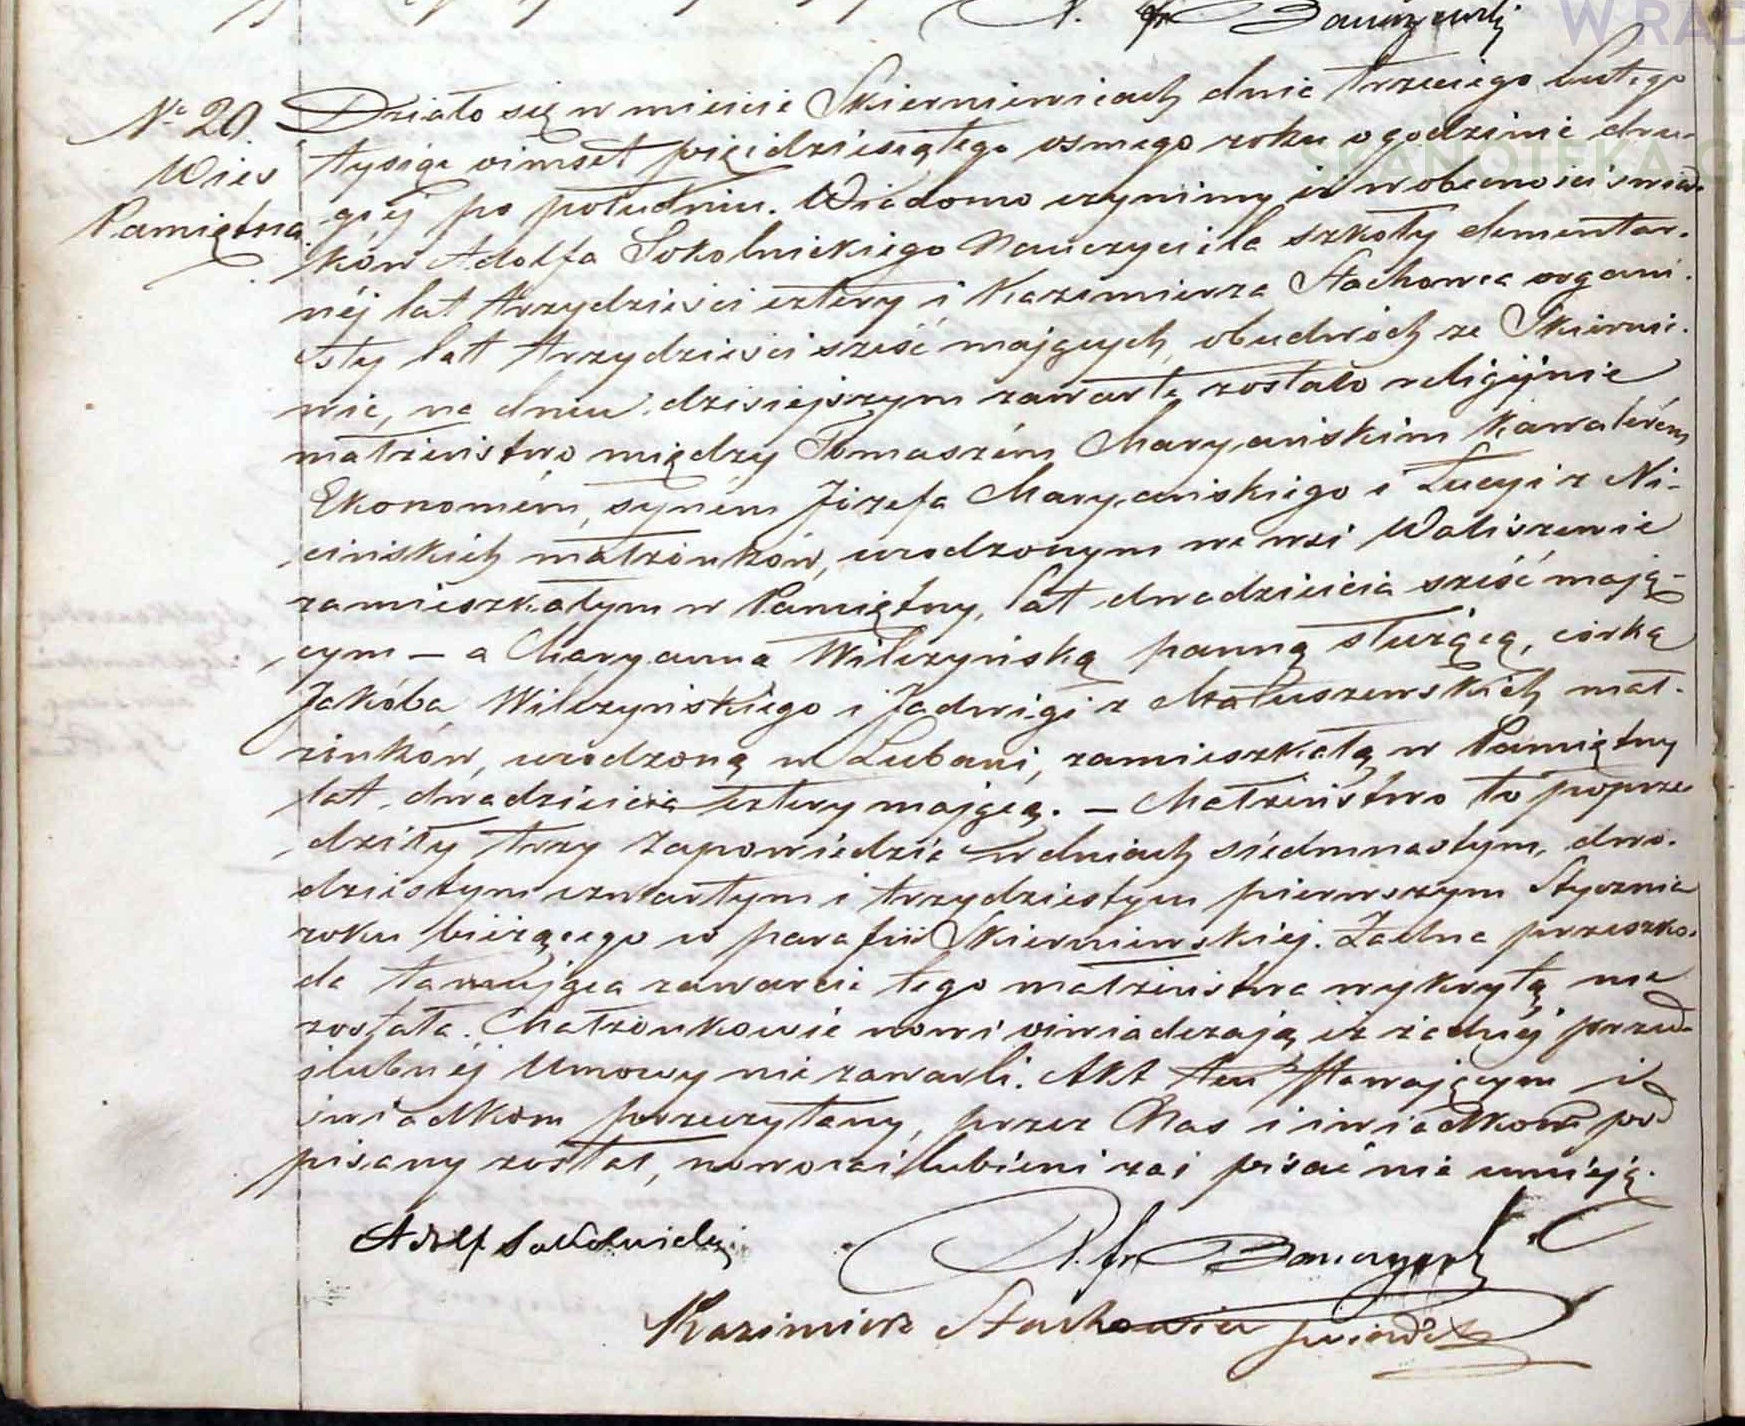 W RAD
SKANOTEKA GE
X. fr. Bauczewski
Nº 20.
Wies
Pamiętna
Działo się w mieście Skierniewicach dnia trzeciego Lutego
tysiąc oimset pięćdziesiątego osmego roku o godzinie dru-
giej po południu. Wiadomo czynimy iż w obecności świad-
ków Adolfa Sokolnickiego Nauczyciela szkoły elementar-
néj lat trzydzieści cztery i Kazimierza Stachowca organi-
sty lat trzydzieści sześć mających, obudwóch ze Skiernie-
wic, na dniu dzisiejszym zawarte zostało religijnie
małżeństwo między Tomaszém Maryańskim Kawalérem
Ekonomém, synem Józefa Maryańskiego i Łucyi z Ni-
cińskich małżonków, urodzonym we wsi Waliszewie
zamieszkałym w Pamiętny, lat dwadzieścia sześć mają-
cym – a Maryanną Wilczyńską panną służącą, córką
Jakóba Wilczyńskiego i Jadwigi z Matuszewskich mał-
żonków, urodzoną w Lubani, zamieszkałą w Pamiętny
lat dwadzieścia cztery mającą. – Małżeństwo to poprze-
dziły trzy zapowiedzie w dniach siedmnastym, dwu-
dziestym czwartym i trzydziestym pierwszym Stycznia
roku bieżącego w parafii Skierniewskiej. Żadna przeszko-
da tamująca zawarcie tego małżeństwa wykrytą nie
została. Małżonkowie nowi oświadczają iż żadnéj przed-
ślubnéj Umowy nie zawarli. Akt ten Stawającym i
świadkom przeczytany, przez Nas i świadków pod
pisany został, nowozaślubieni zaś pisać nie umieją.
Adolf Sokolnicki
X. fr. Bauczewski
Kazimierz Stachowicz świadek